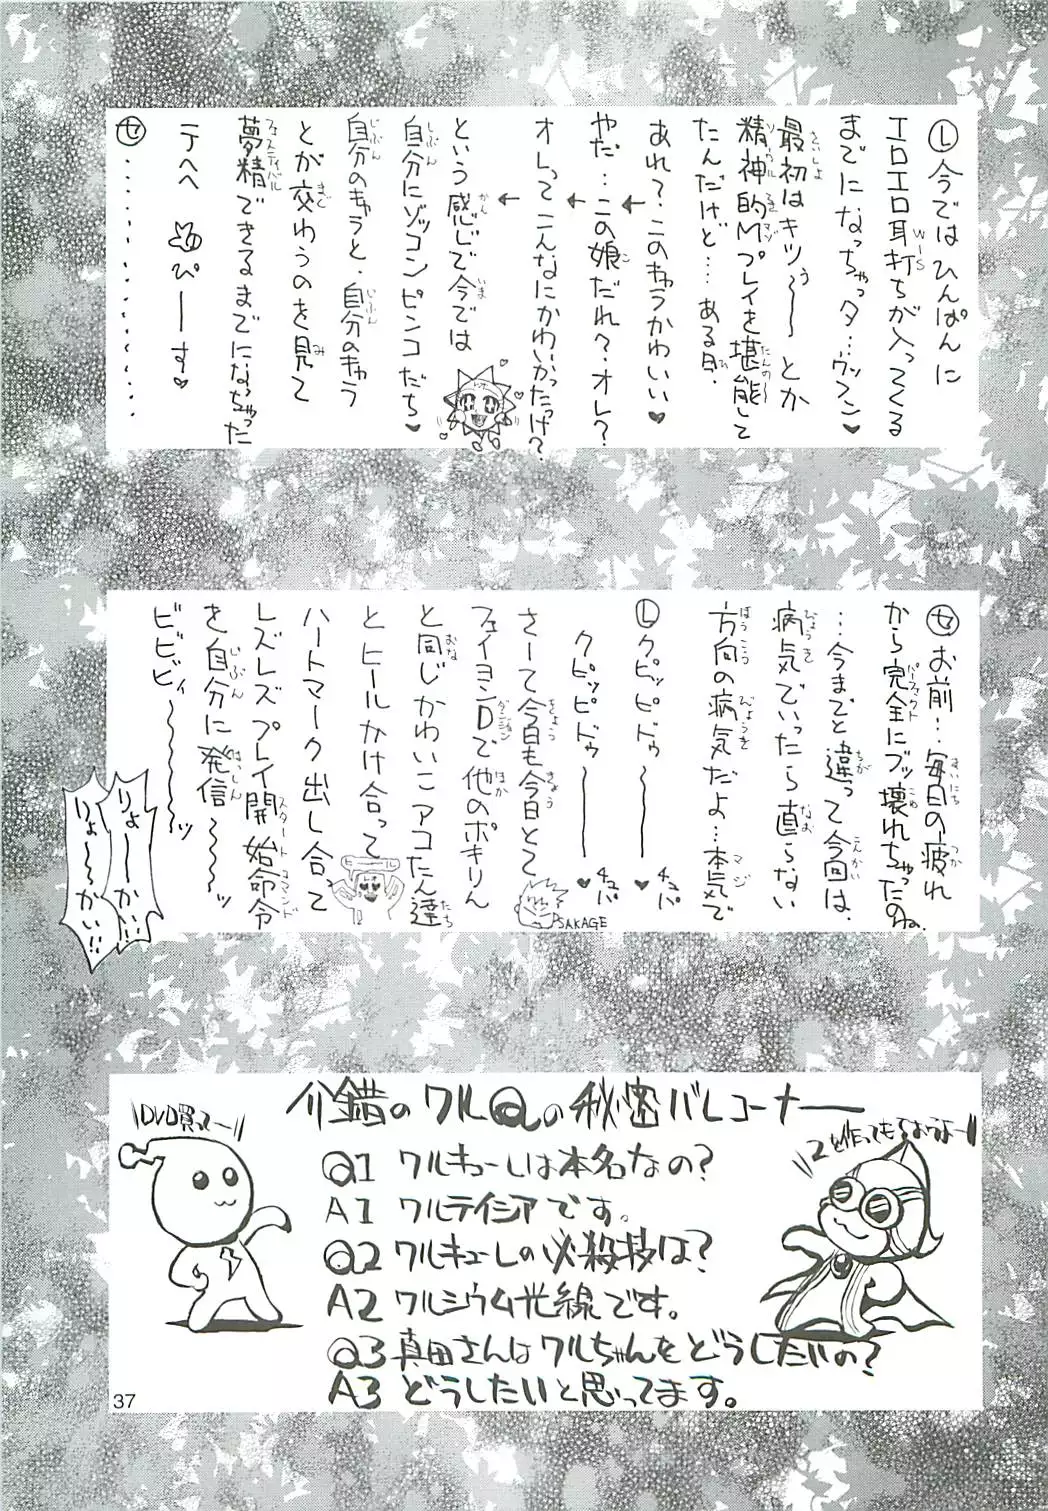 Ⓛ今ではひんぱんに
エロエロ耳打ちが入ってくる
までになっちゃっタ…ウッフン♥
最初はキツぅ〜〜とか
精神的Mプレイを堪能して
たんだけど…ある日、
あれ?このキャラかわいい♥
やだ…この娘だれ?オレ?
オレってこんなにかわいかったっけ?
という感じで今では
自分にゾッコンピンコだち♥
自分のキャラと、自分のキャラ
とが交わうのを見て
夢精できるまでになっちゃった
テヘヘ ぴーす♥
㋝・・・・・・・・・・・・
㋝お前…毎日の疲れ
から完全にブッ壊れちゃったのね。
…今までと違って今回は、
病気でいったら直らない
方向の病気だよ…本気で
Ⓛクピッピドゥ〜〜♥チュパ
クピッピドゥ〜〜♥チュパ
さーて今日も今日とて
フェイヨンDで他のポキりん
と同じかわいこアコたん達
とヒールかけ合って
ハートマーク出し合って
レズレズプレイ開始命令
を自分に発信〜〜ッ
ビビビィ〜〜〜ッ
ヒール
PSAKAGE
りょーーかい!!
りょ〜〜かい!!
介錯のワルQの秘密バレコーナー
\DVD買ってー//
\\2と作ってもちおうよー\\
Q1 ワルキューレは本名なの?
A1 ワルテイシアです。
Q2 ワルキューレの必殺技は?
A2 ワルシウム光線です。
Q3 真田さんはワルちゃんをどうしたいの?
A3 どうしたいと思ってます。
37